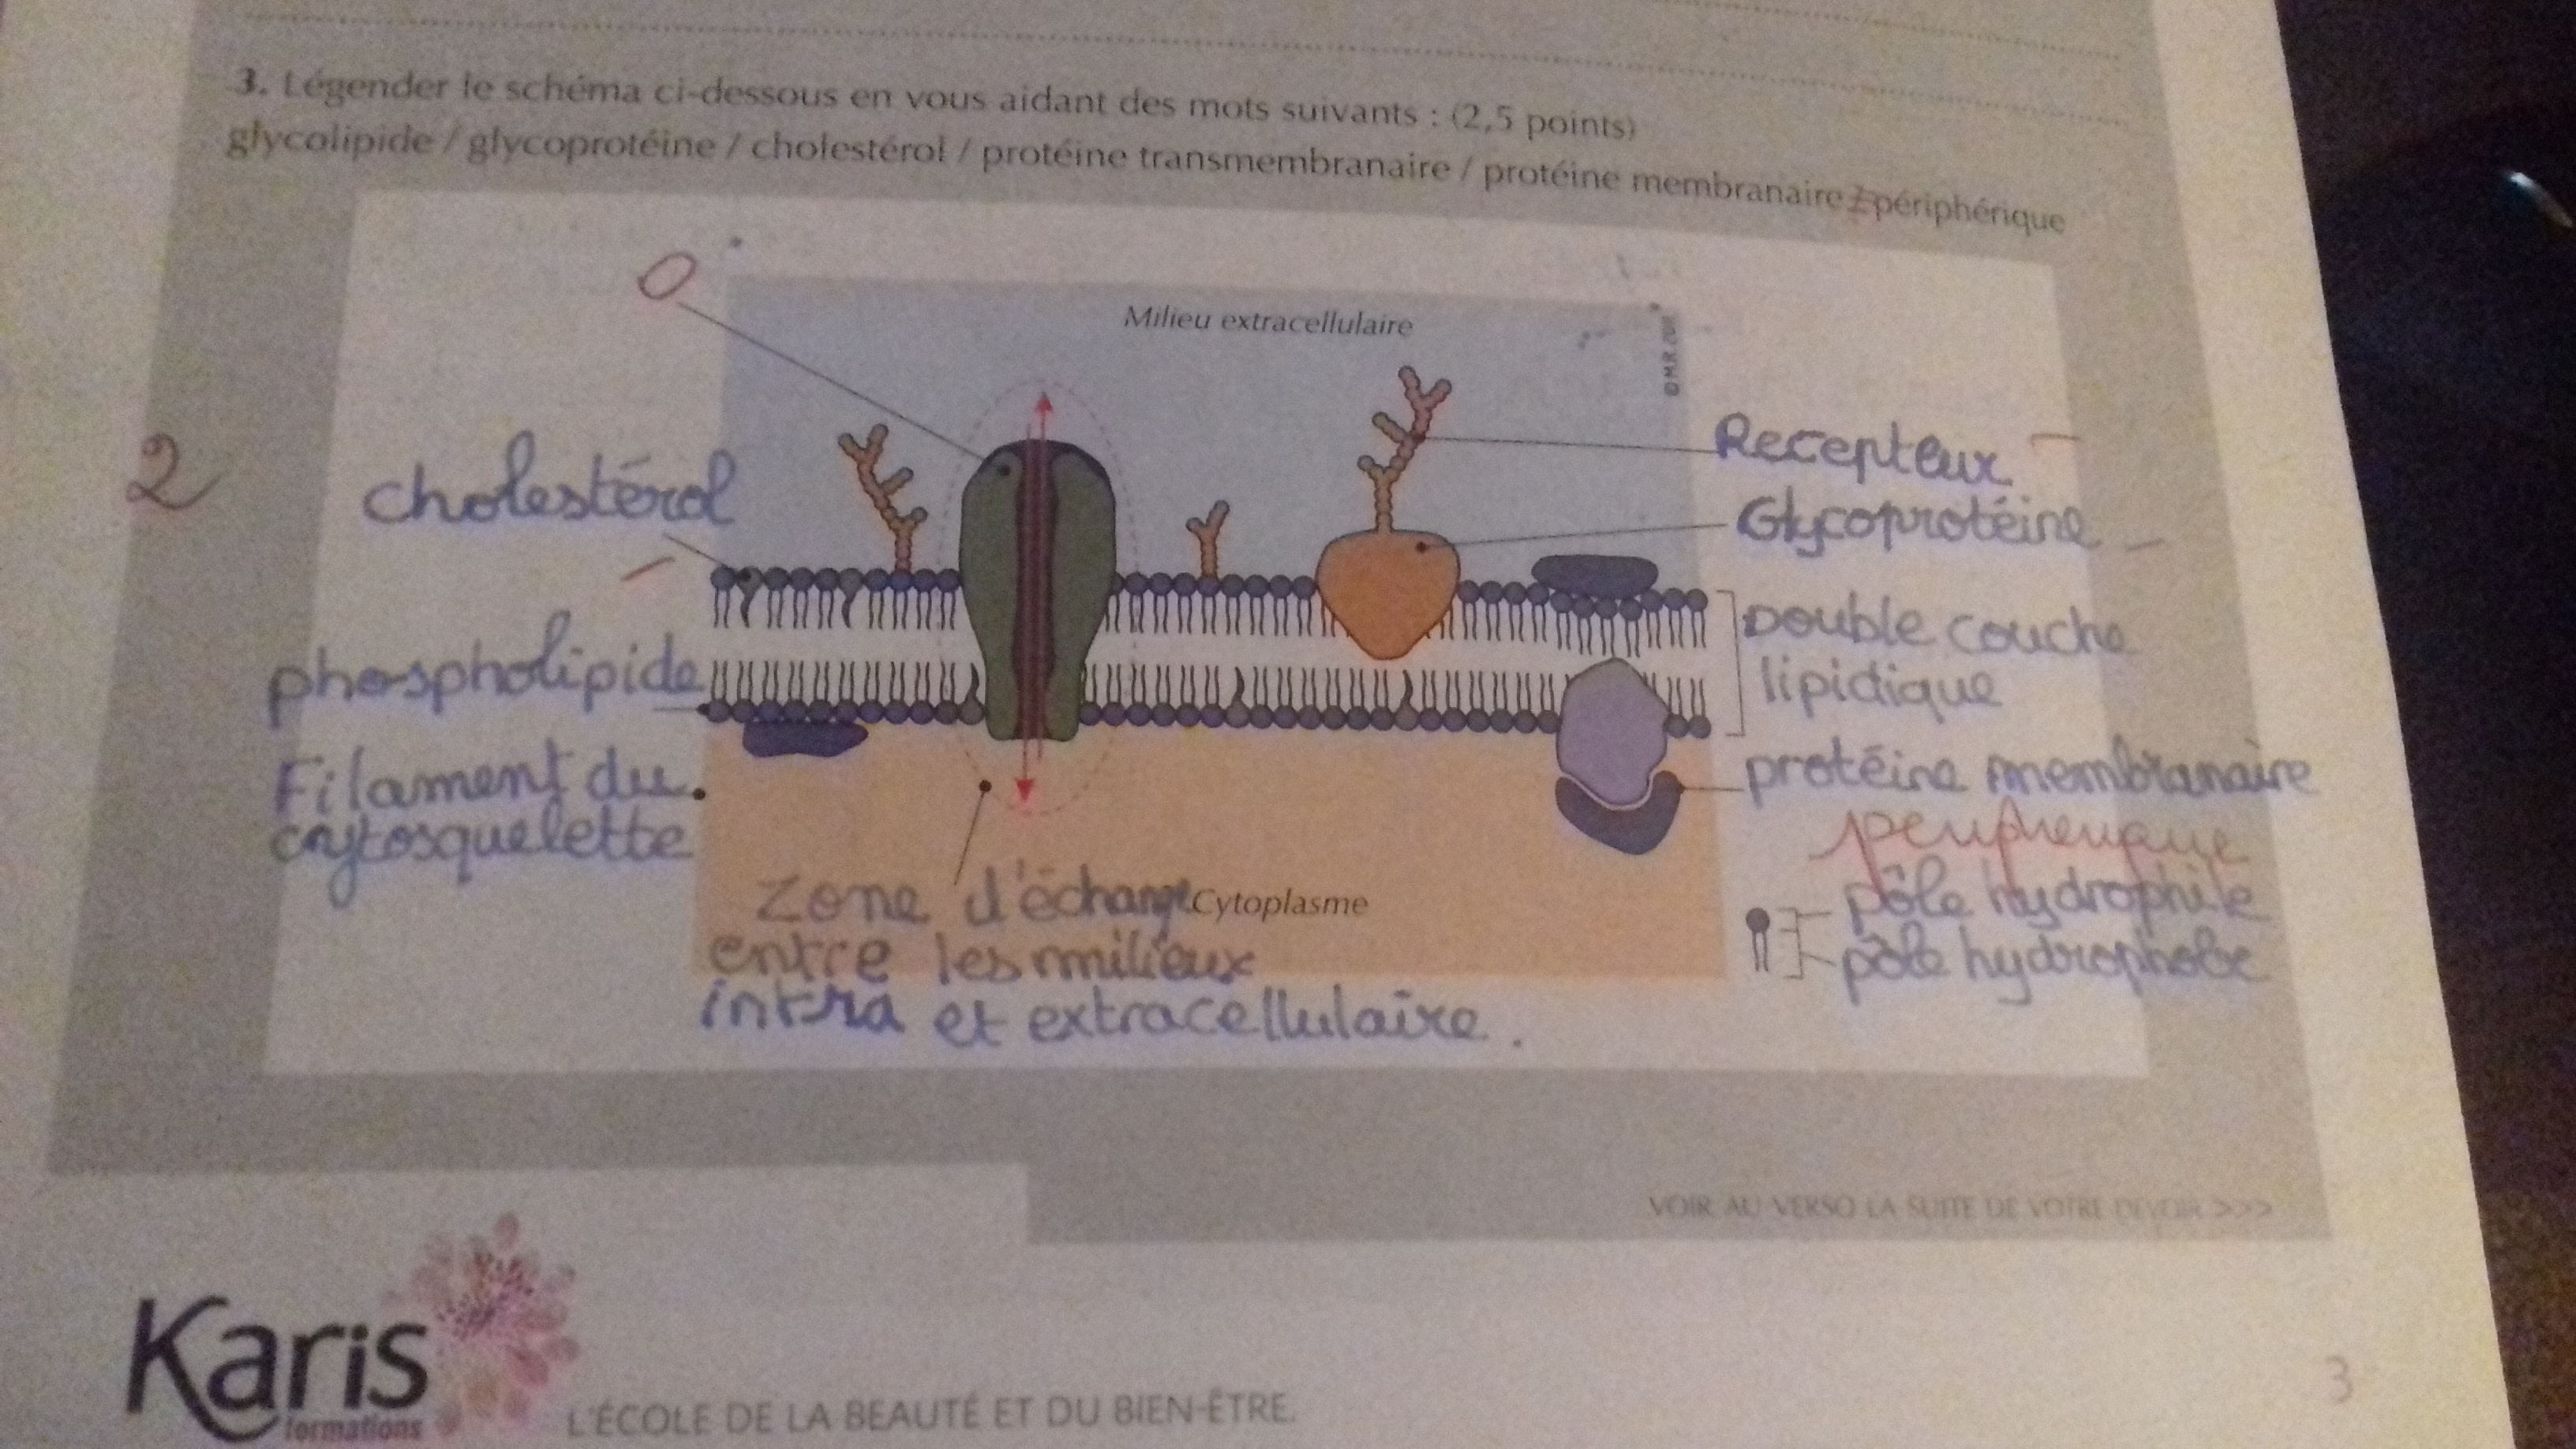 3. Légender le schéma ci-dessous en vous aidant des mots suivants : (2,5 points)
glycolipide / glycoprotéine / cholestérol / protéine transmembranaire / protéine membranaire / périphérique
Milieu extracellulaire
© M.R.
2
cholestérol
Recepteur
Glycoprotéine
Double couche
lipidique
phospholipide
Filament du
cytosquelette
protéine membranaire
peripherique
pôle hydrophile
pôle hydrophobe
Zone d'échange
Cytoplasme
entre les milieux
intra et extracellulaire.
VOIR AU VERSO LA SUITE DE VOTRE DEVOIR >>>
Karis
formations
L'ÉCOLE DE LA BEAUTÉ ET DU BIEN-ÊTRE.
3